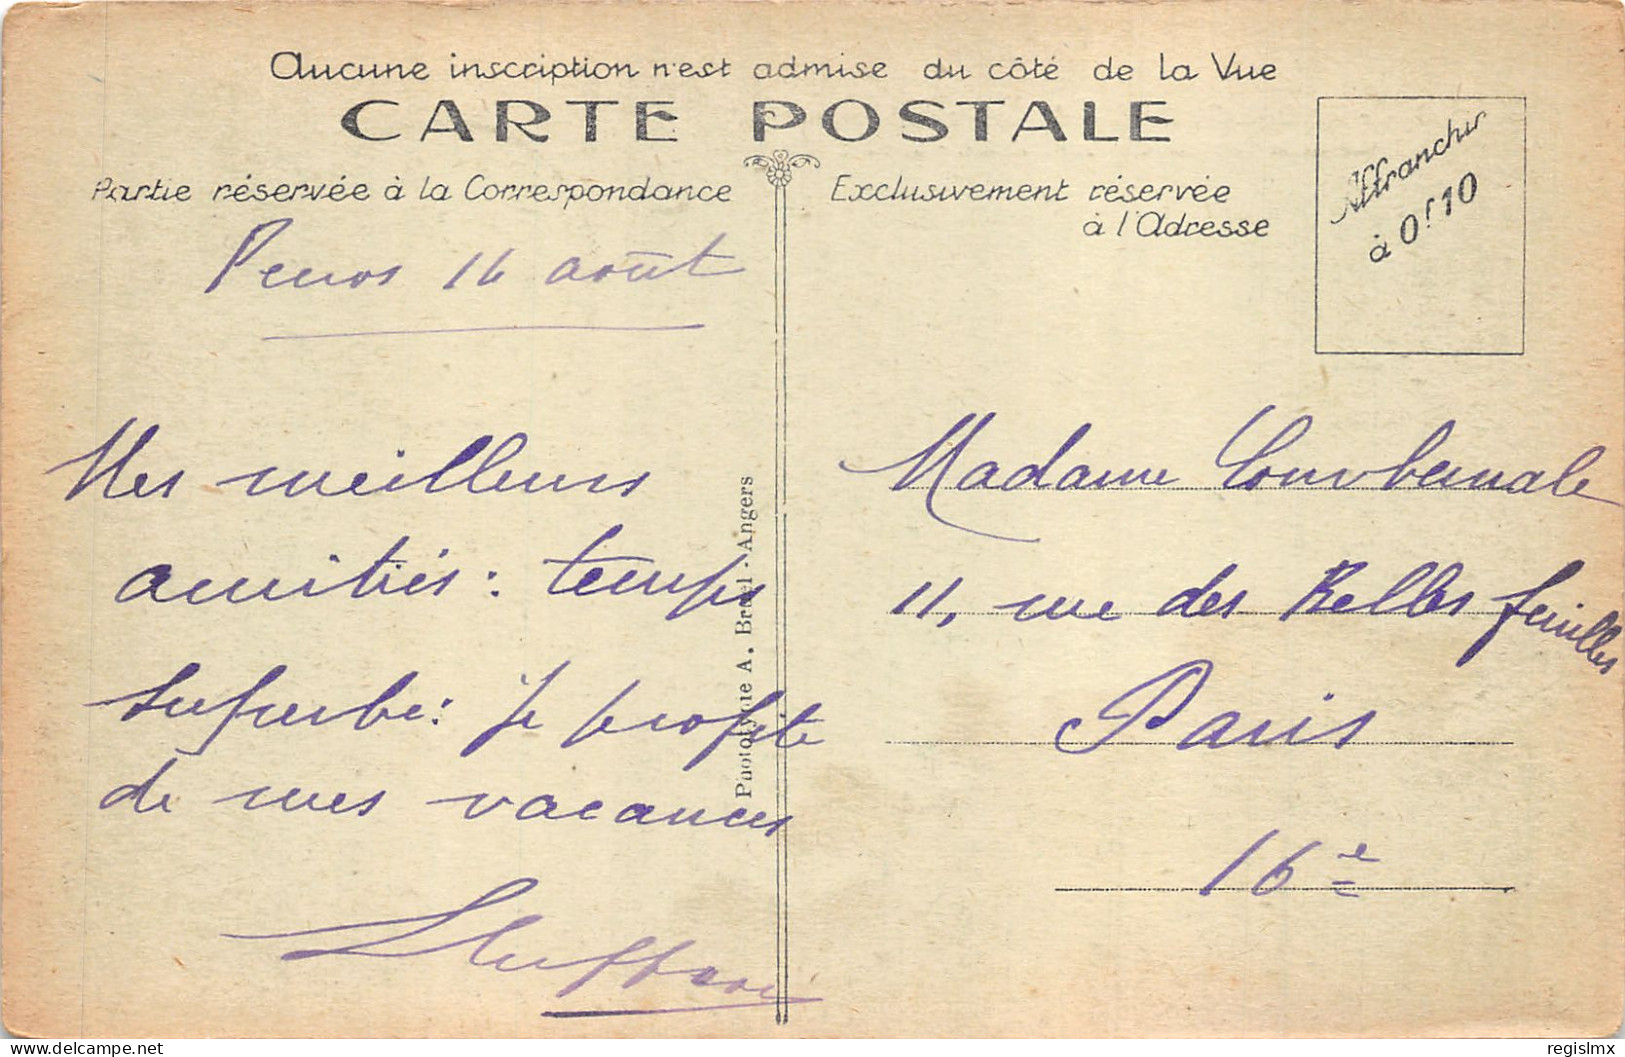 Aucune inscription n'est admise du côté de la Vue
CARTE POSTALE
Partie réservée à la Correspondance
Exclusivement réservée
à l'Adresse
Affranchir
à 0f10
16 août
Mes meilleurs
amitiés : temps
superbe : je profite
de mes vacances
Phototypie A. Bruel - Angers
Madame
11, rue des Belles feuilles
Paris
16e
delcampe.net
regislmx